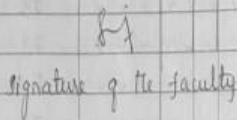 signature of the faculty